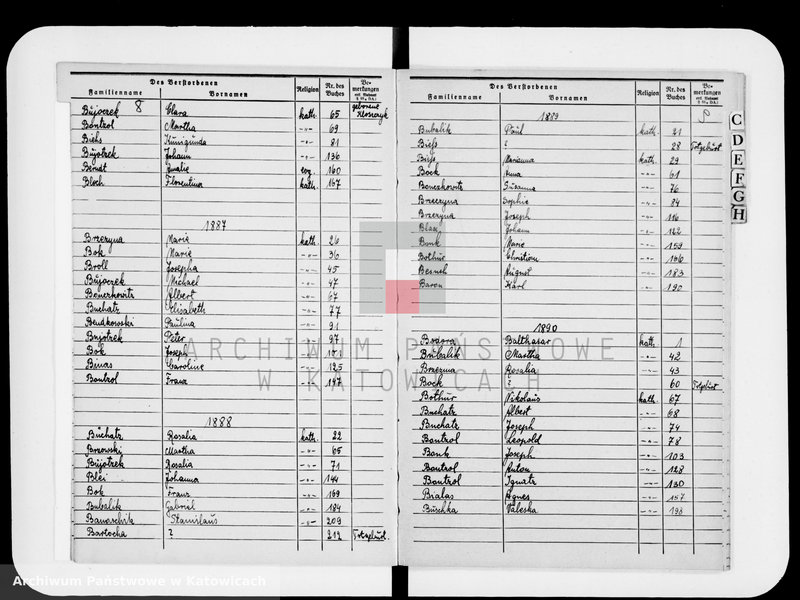 Des Verstorbenen
Familienname Vornamen Religion Nr. des Buches Bemerkungen
8
Bujoczek Clara kath. 65 geborene
Bontzol Martha -"- 69
Biehs Kunigunda -"- 81
Bujotzek Johann -"- 136
Berndt Amalie evg. 160
Bloch Florentina kath. 167
1887
Brzezyna Marie kath. 26
Bok Marie -"- 36
Broll Josepha -"- 45
Bujoczek Michael -"- 47
Bonczkowitz Albert -"- 67
Buchatz Elisabeth -"- 77
Paulina -"- 91
Bujotzek Peter -"- 97
Bok Joseph -"- 101
Binas Caroline -"- 125
Bontzol Franz -"- 147
1888
Buchatz Rosalia kath. 22
Brzowski Martha -"- 65
Bujotzek Rosalia -"- 71
Blei Johanna -"- 144
Bok Franz -"- 169
Bubalik Gabriel -"- 184
Banaschik Stanislaus -"- 209
Bartocha ? 212 Totgeburt.
Des Verstorbenen
Familienname Vornamen Religion Nr. des Buches Bemerkungen
9
1889
Bubalik Paul kath. 21
Biess ? 28 Totgeburt
Biess Marianna kath. 29
Bock Anna -"- 61
Bonczkowitz Susanna -"- 76
Brzezyna Sophie -"- 84
Brzezyna Joseph -"- 116
Blax Johann -"- 122
Bonk Marie -"- 159
Bothur Christian -"- 166
August -"- 183
Baron Karl -"- 190
1890
Balthasar kath. 1
Bubalik Martha -"- 42
Brzezna Rosalia -"- 43
Bock ? 60 Totgeburt
Bothur Nikolaus kath. 67
Buchatz Albert -"- 68
Buchatz Joseph -"- 74
Bontzol Leopold -"- 78
Bonk Joseph -"- 103
Bontzol Anton -"- 128
Bontzol Ignatz -"- 130
Bialas Agnes -"- 157
Buschka Valeska -"- 198
C
D
E
F
G
H
ARCHIWUM PAŃSTWOWE
W KATOWICACH
Archiwum Państwowe w Katowicach